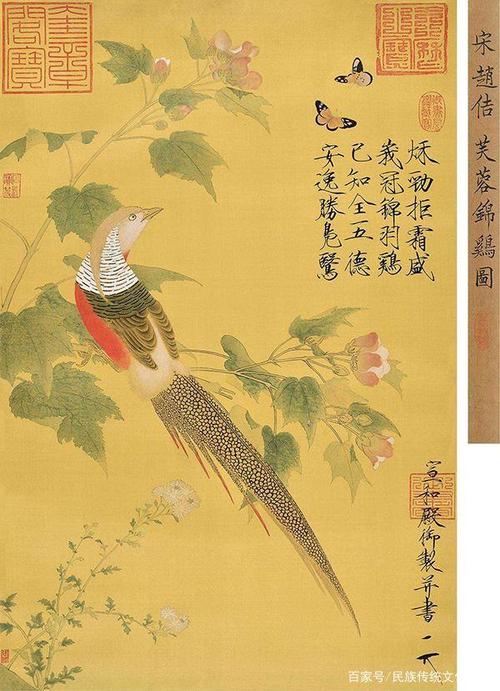 宋趙佶 芙蓉錦鷄圖
奎章
閣寶
秋勁拒霜盛
峩冠錦羽鷄
已知全五德
安逸勝鳧鷖
宣和殿御製并書
百家号/民族传统文